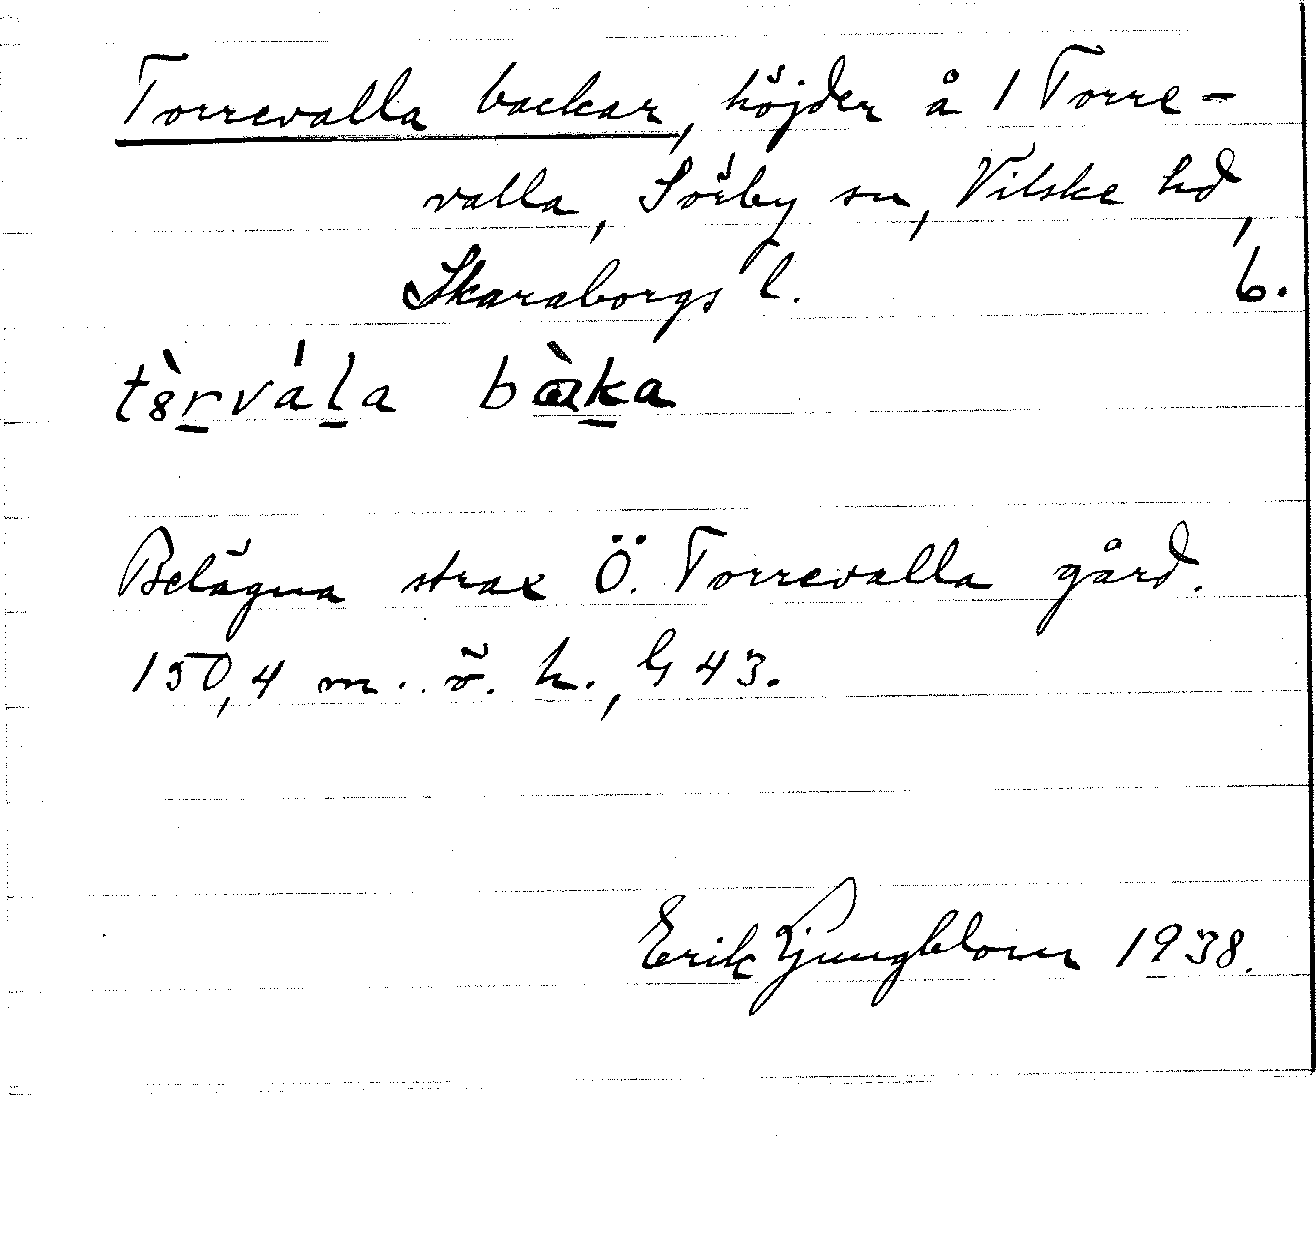 Torrevalla backar, höjder å 1 Torre-
valla, Sörby sn, Vilske hd,
Skaraborgs l. 6.
t8̀rvála bàka
Belägna strax Ö. Torrevalla gård.
150,4 m. ö. h., G 43.
Erik Ljungblom 1938.